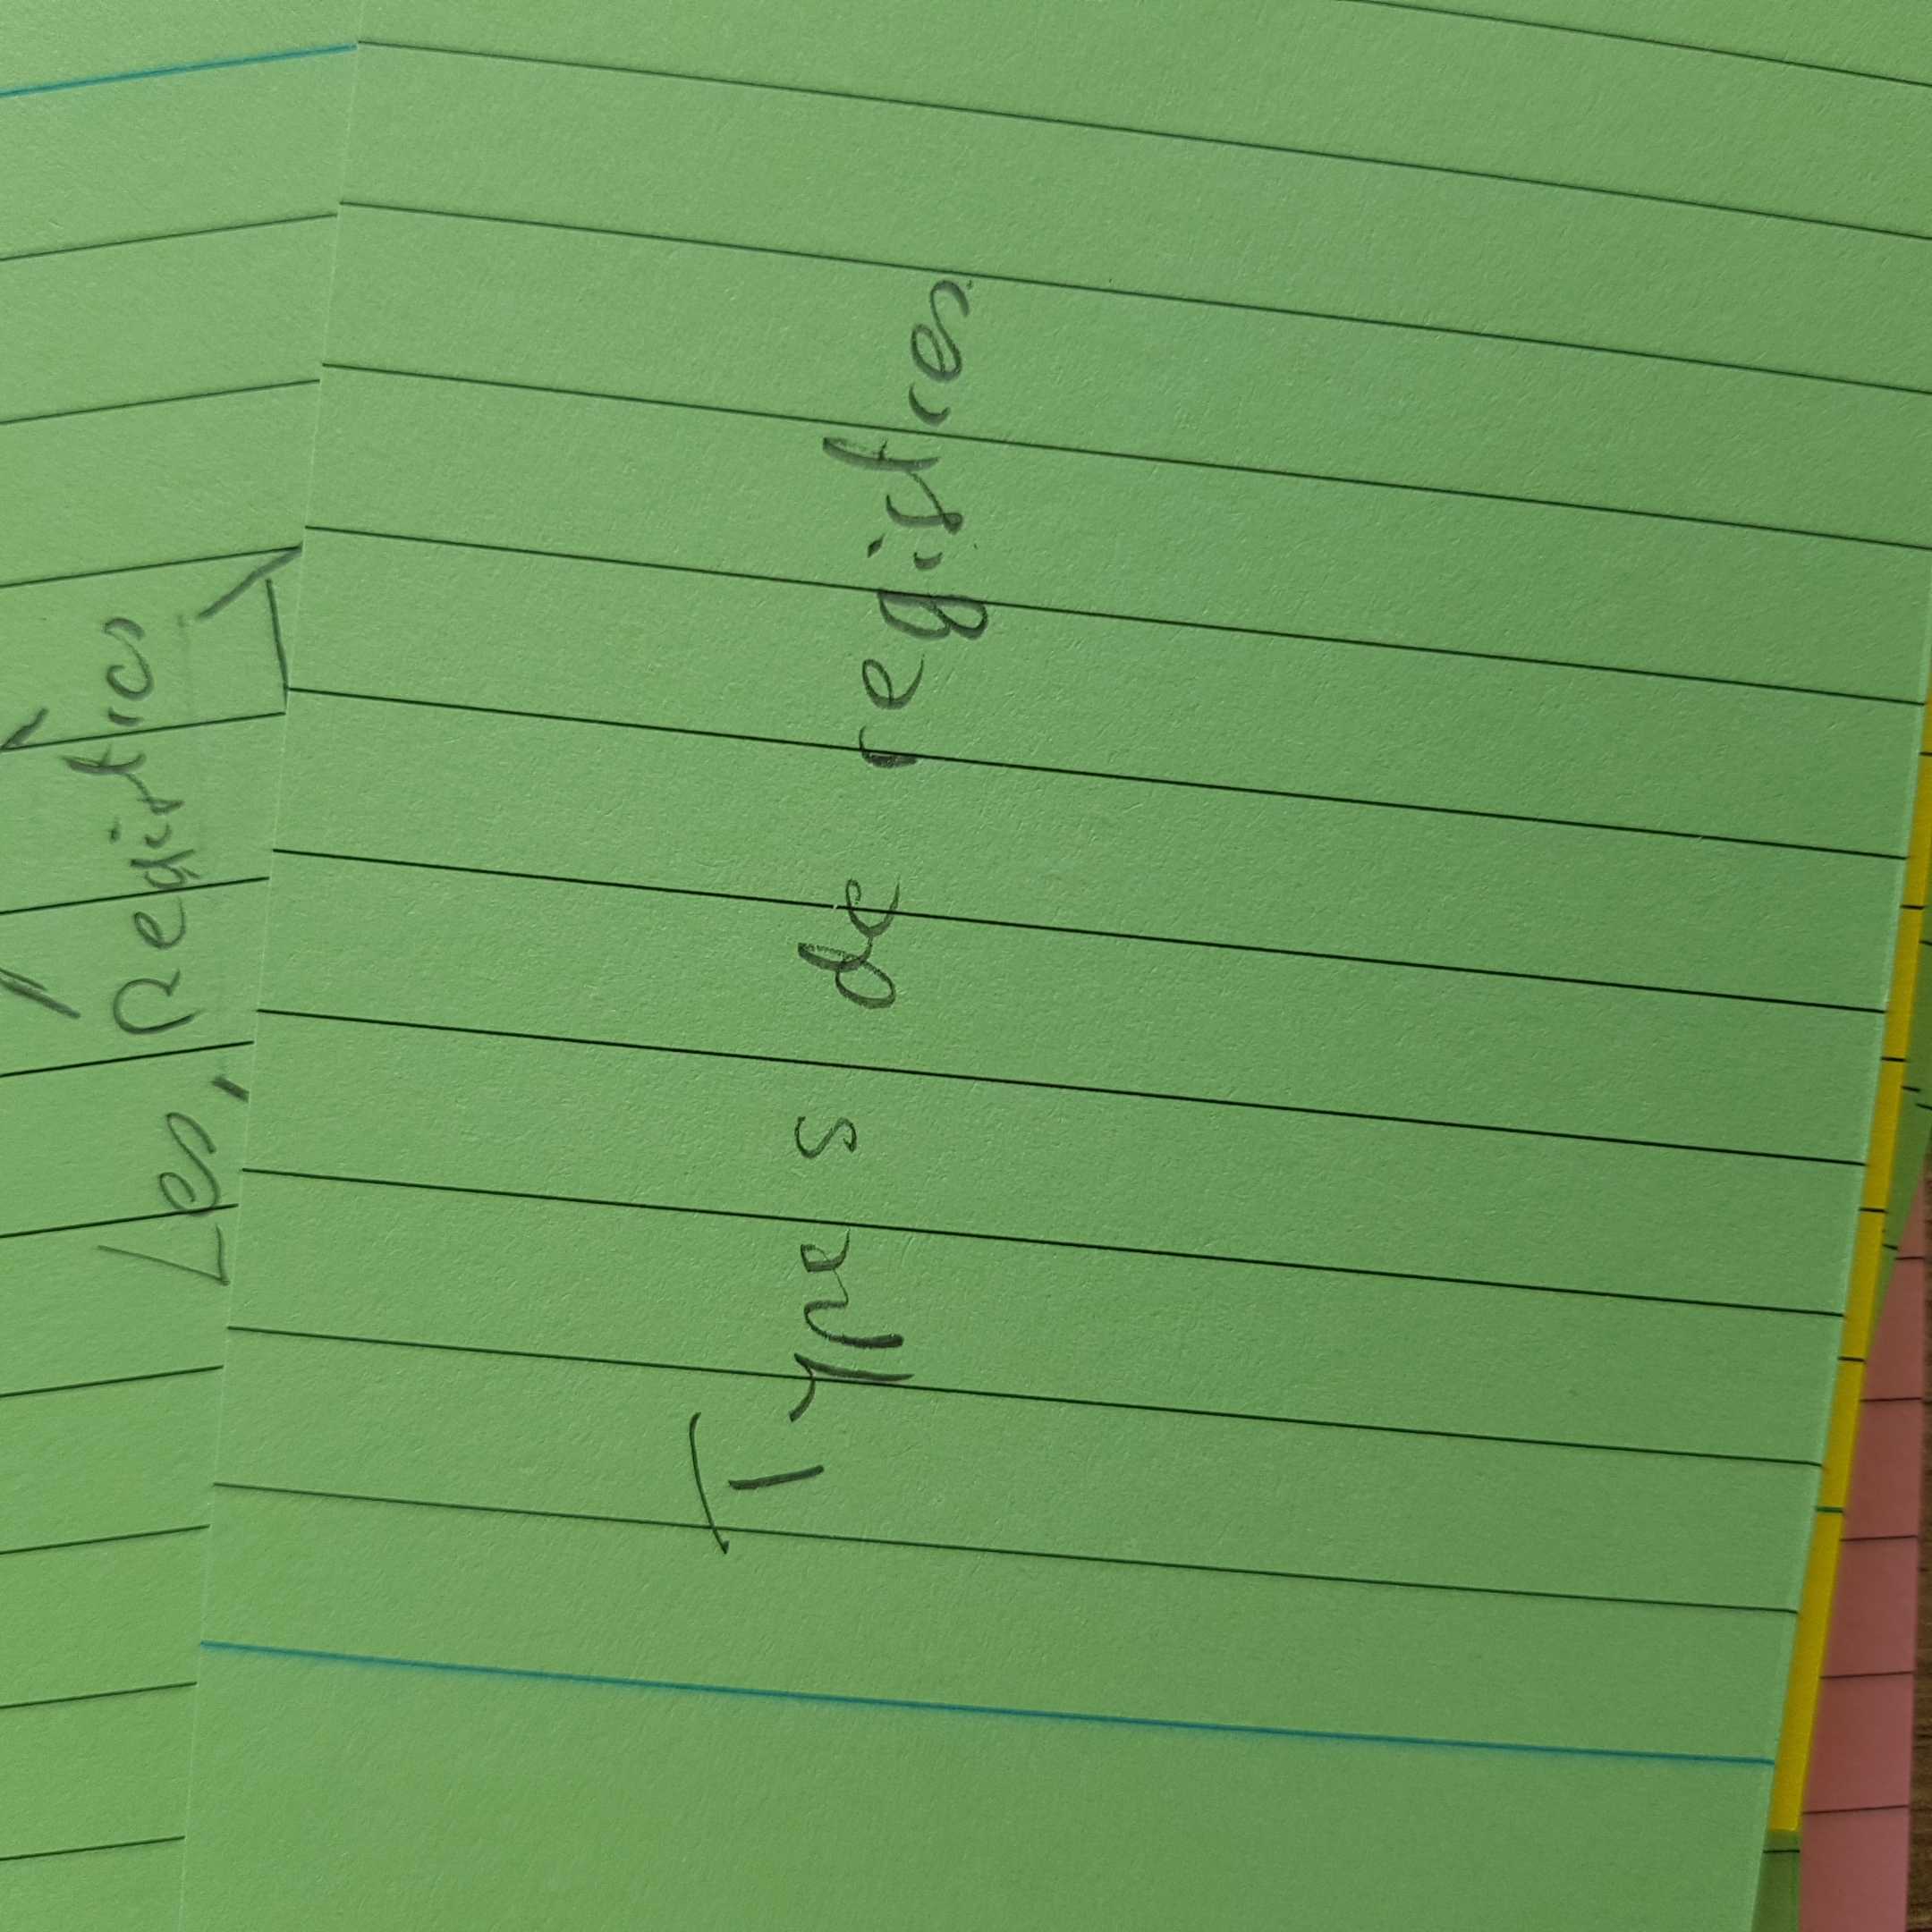 Les Registres
Types de registres